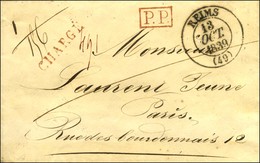 P.P.
REIMS
13
OCT.
1839
(49)
CHARGÉ
Monsieur
Laurent Jeune
Paris.
Rue des Bourdonnais 12